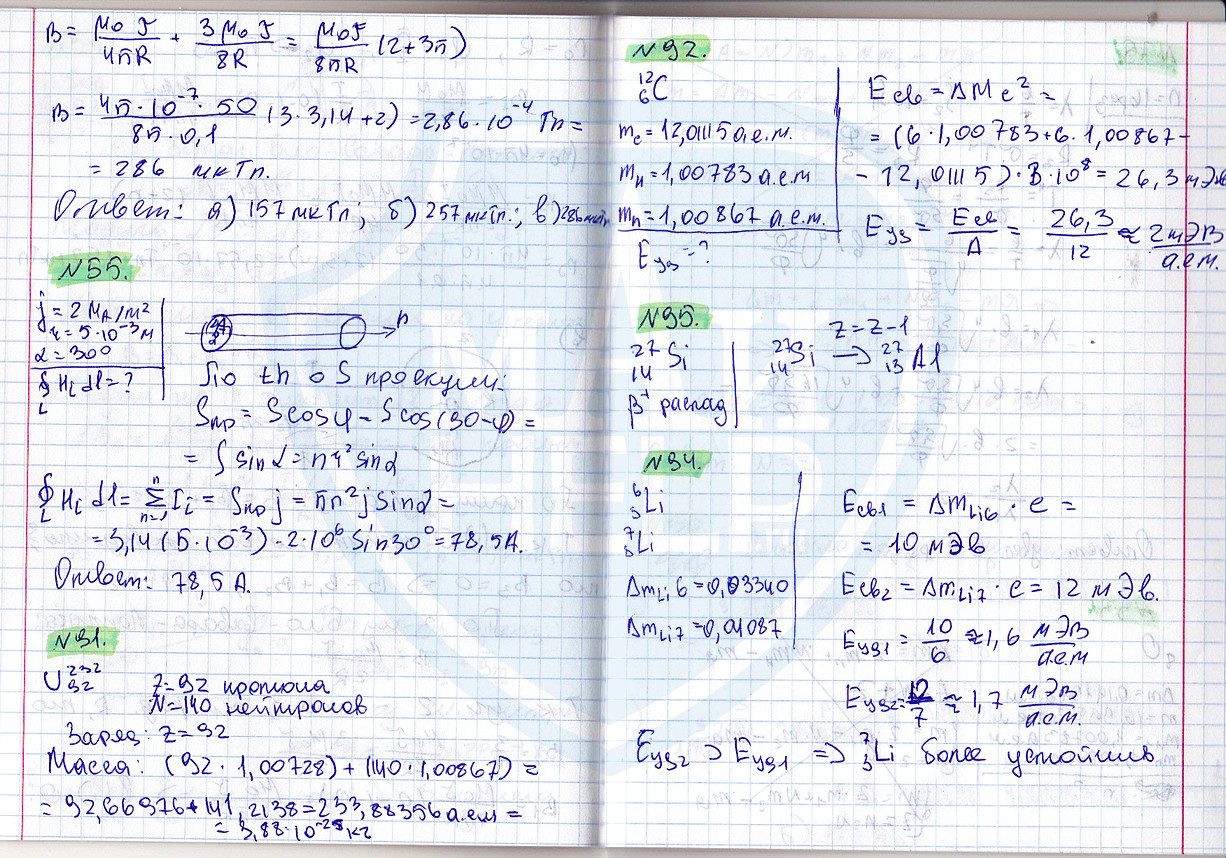 B = μ₀J/4πR + 3μ₀J/8R = μ₀J/8πR (2+3π)
B = 4π·10⁻⁷·50/8π·0,1 (3·3,14+2) = 2,86·10⁻⁴ Тл =
= 286 мкТл.
Ответ: а) 157 мкТл; б) 257 мкТл; в) 286 мкТл
№55.
j = 2 МА/м²
r = 5·10⁻³ м
α = 30°
∮L Hₗ dl = ?
n
По th о S проекции:
Sпр = S cosφ = S cos(90-φ) =
= S sinα = πr² sinα
∮L Hₗ dl = ∑ⁿₙ₌₁ Iᵢ = Sпр j = πr² j sinα =
= 3,14 (5·10⁻³)·2·10⁶ sin30° = 78,5 А.
Ответ: 78,5 А.
№91.
U²³²₉₂ Z=92 протона
N=140 нейтронов
Заряд: Z=92
Масса: (92·1,00728)+(140·1,00867) =
= 92,66976+141,2138=233,88356 а.е.м =
= 3,88·10⁻²⁵ кг
№92.
¹²₆C
mс=12,01115 а.е.м.
mн=1,00783 а.е.м
mn=1,00867 а.е.м.
Eуд=?
Eсв = ΔMc² =
= (6·1,00783+6·1,00867-
- 12,01115)·3·10⁸ = 26,3 мЭв
Eуд = Eсв/A = 26,3/12 ≈ 2 мЭВ/а.е.м.
№95.
²⁷₁₄Si
β⁺ распад
Z=Z-1
²⁷₁₄Si → ²⁷₁₃Al
№94.
⁶₃Li
⁷₃Li
ΔmLi6=0,03340
ΔmLi7=0,01087
Eсв1 = ΔmLi6·c =
= 10 мЭв
Eсв2 = ΔmLi7·c = 12 мЭв.
Eуд1 = 10/6 ≈ 1,6 мЭВ/а.е.м
Eуд2 = 12/7 ≈ 1,7 мЭВ/а.е.м.
Eуд2 > Eуд1 => ⁷₃Li более устойчив